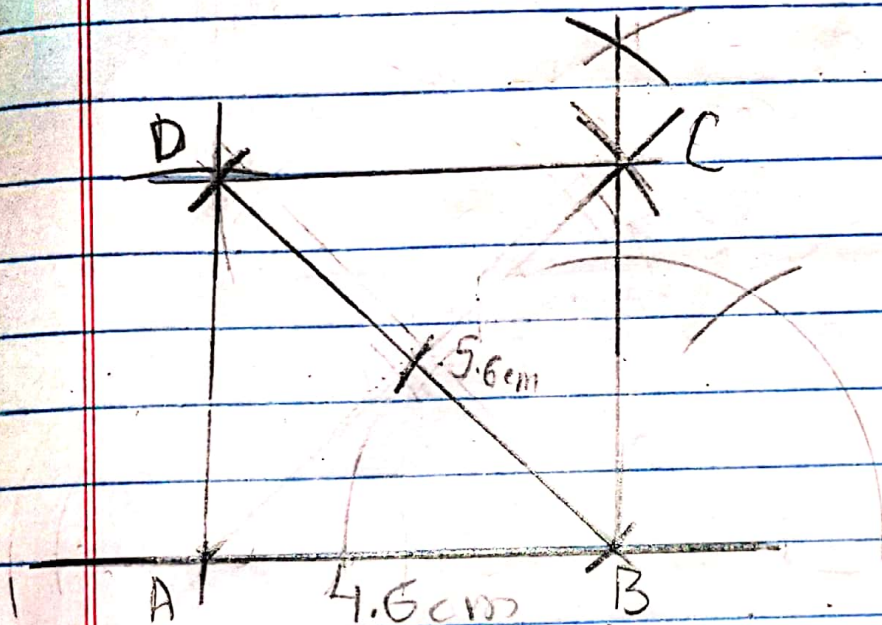 D
C
5.6cm
A
4.6cm
B